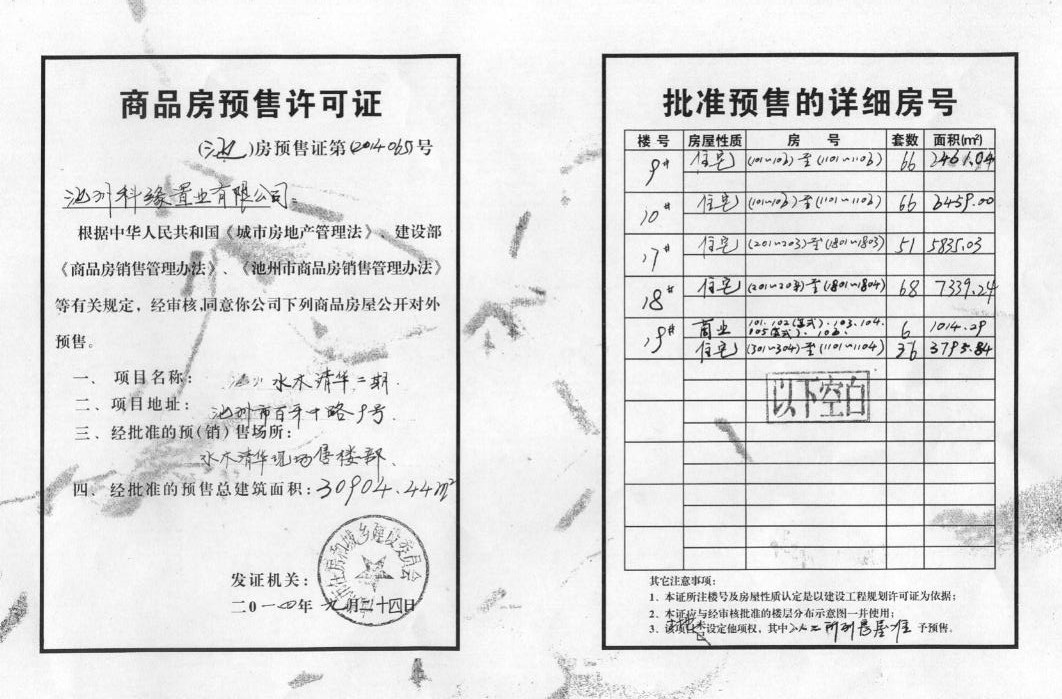 商品房预售许可证
(池)房预售证第(2014065号
池州科缘置业有限公司:
根据中华人民共和国《城市房地产管理法》、建设部
《商品房销售管理办法》、《池州市商品房销售管理办法》
等有关规定，经审核,同意你公司下列商品房屋公开对外
预售。
一、项目名称: 池州水木清华二期.
二、项目地址: 池州市百牙中路9号.
三、经批准的预(销)售场所:
水木清华现场售楼部.
四、经批准的预售总建筑面积:30904.44m²
住房和城乡建设委员会
发证机关:
二0一四年九月二十四日
批准预售的详细房号
楼号 房屋性质 房号 套数 面积(m²)
9# 住宅 (101~106)至(1101~1106) 66 2461.94
10# 住宅 (101~106)至(1101~1106) 66 6459.00
17# 住宅 (201~203)至(1801~1803) 51 5835.03
18# 住宅 (201~204)至(1801~1804) 68 7339.24
19# 商业 101.102(复式).103.104.
105(复式).106. 6 1014.29
住宅 (301~304)至(1101~1104) 36 3795.84
以下空白
其它注意事项:
1．本证所注楼号及房屋性质认定是以建设工程规划许可证为依据;
2．本证应与经审核批准的楼层分布示意图一并使用;
3．该项目土地未设定他项权，其中以上所列房屋准予预售。